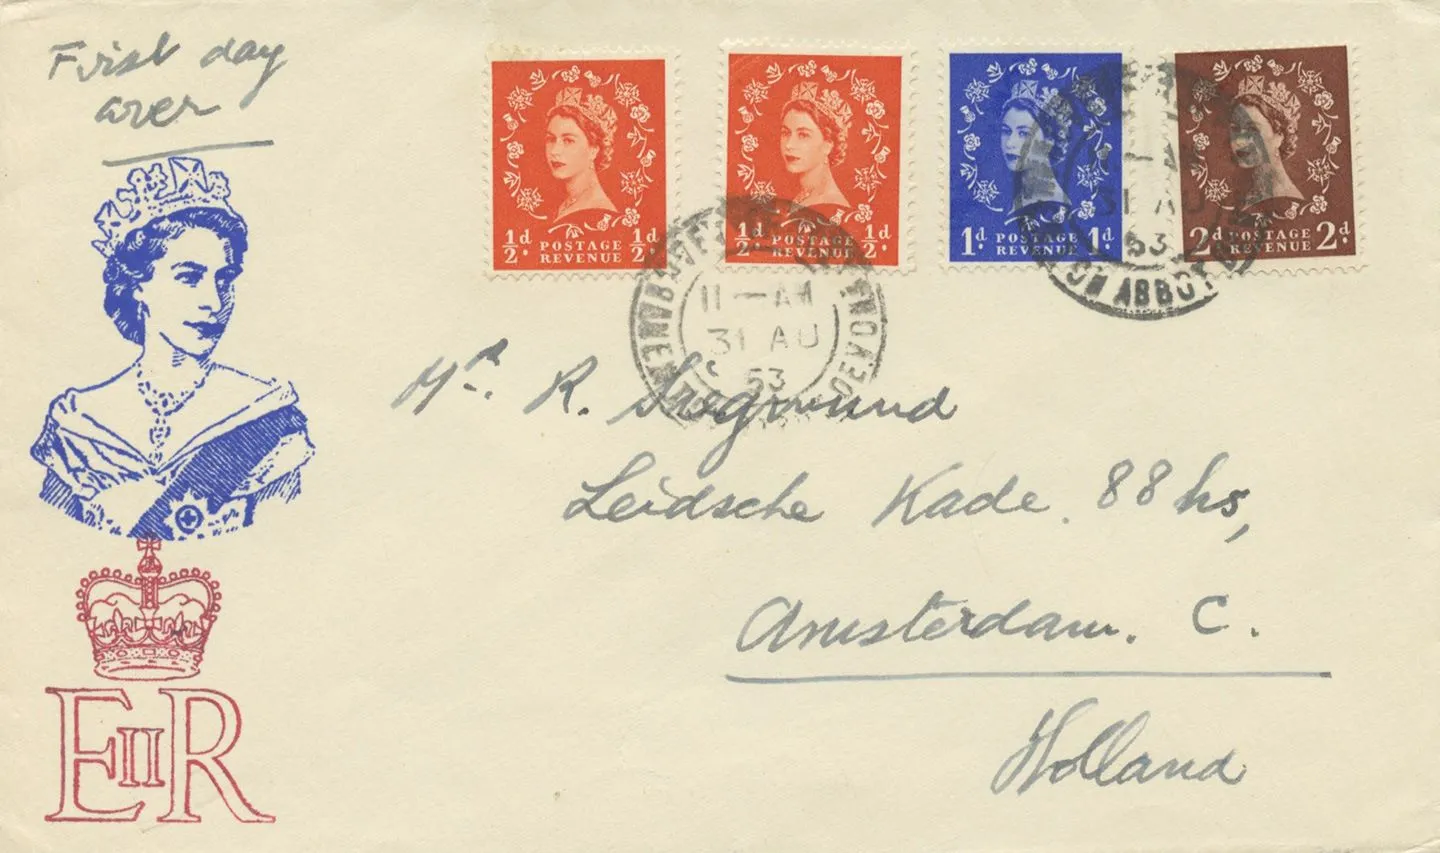 First day
cover
½d. POSTAGE REVENUE ½d.
½d. POSTAGE REVENUE ½d.
1d. POSTAGE REVENUE 1d.
2d. POSTAGE REVENUE 2d.
11 — AM
31 AU
53
DEVON
NEWTON ABBOT
31 AU
53
ABBOT
Mr. R.
Leidsche Kade. 88 hs,
Amsterdam. C.
Holland
E II R